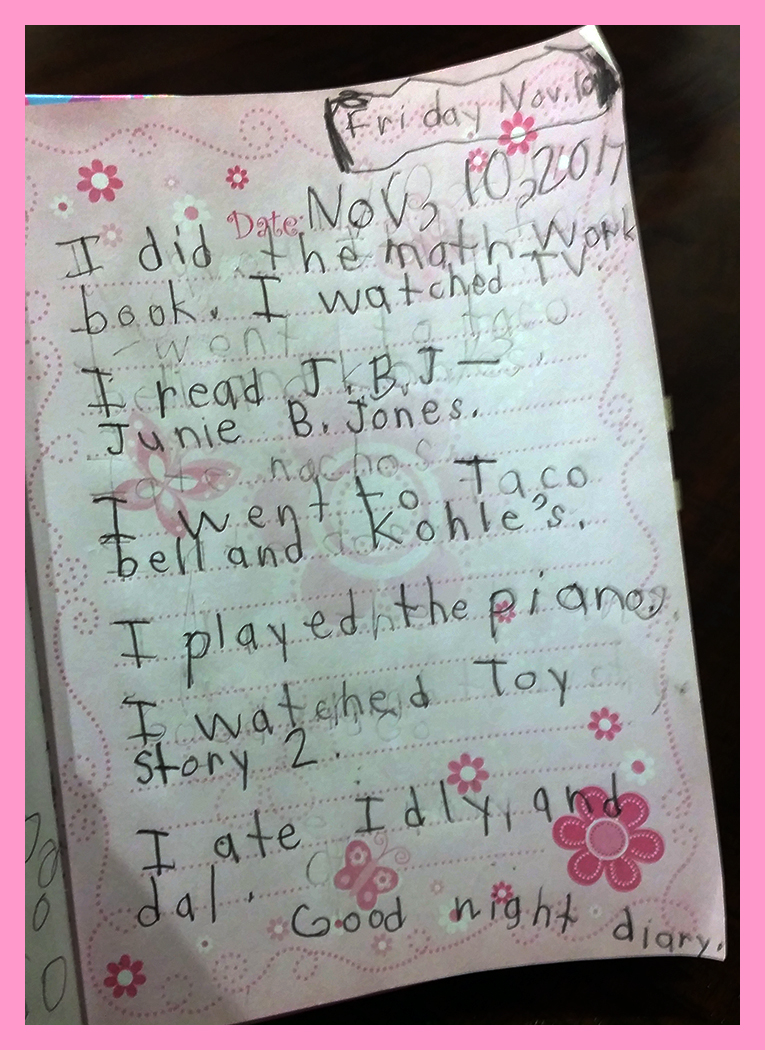 Friday Nov. 10
Date: Nov, 10, 2017
I did the math work
book. I watched TV.
I read J.B.J —
Junie B. Jones.
I went to Taco
bell and Kohle's.
I played the piano.
I watched Toy
story 2.
I ate Idly, and
dal.
Good night diary.